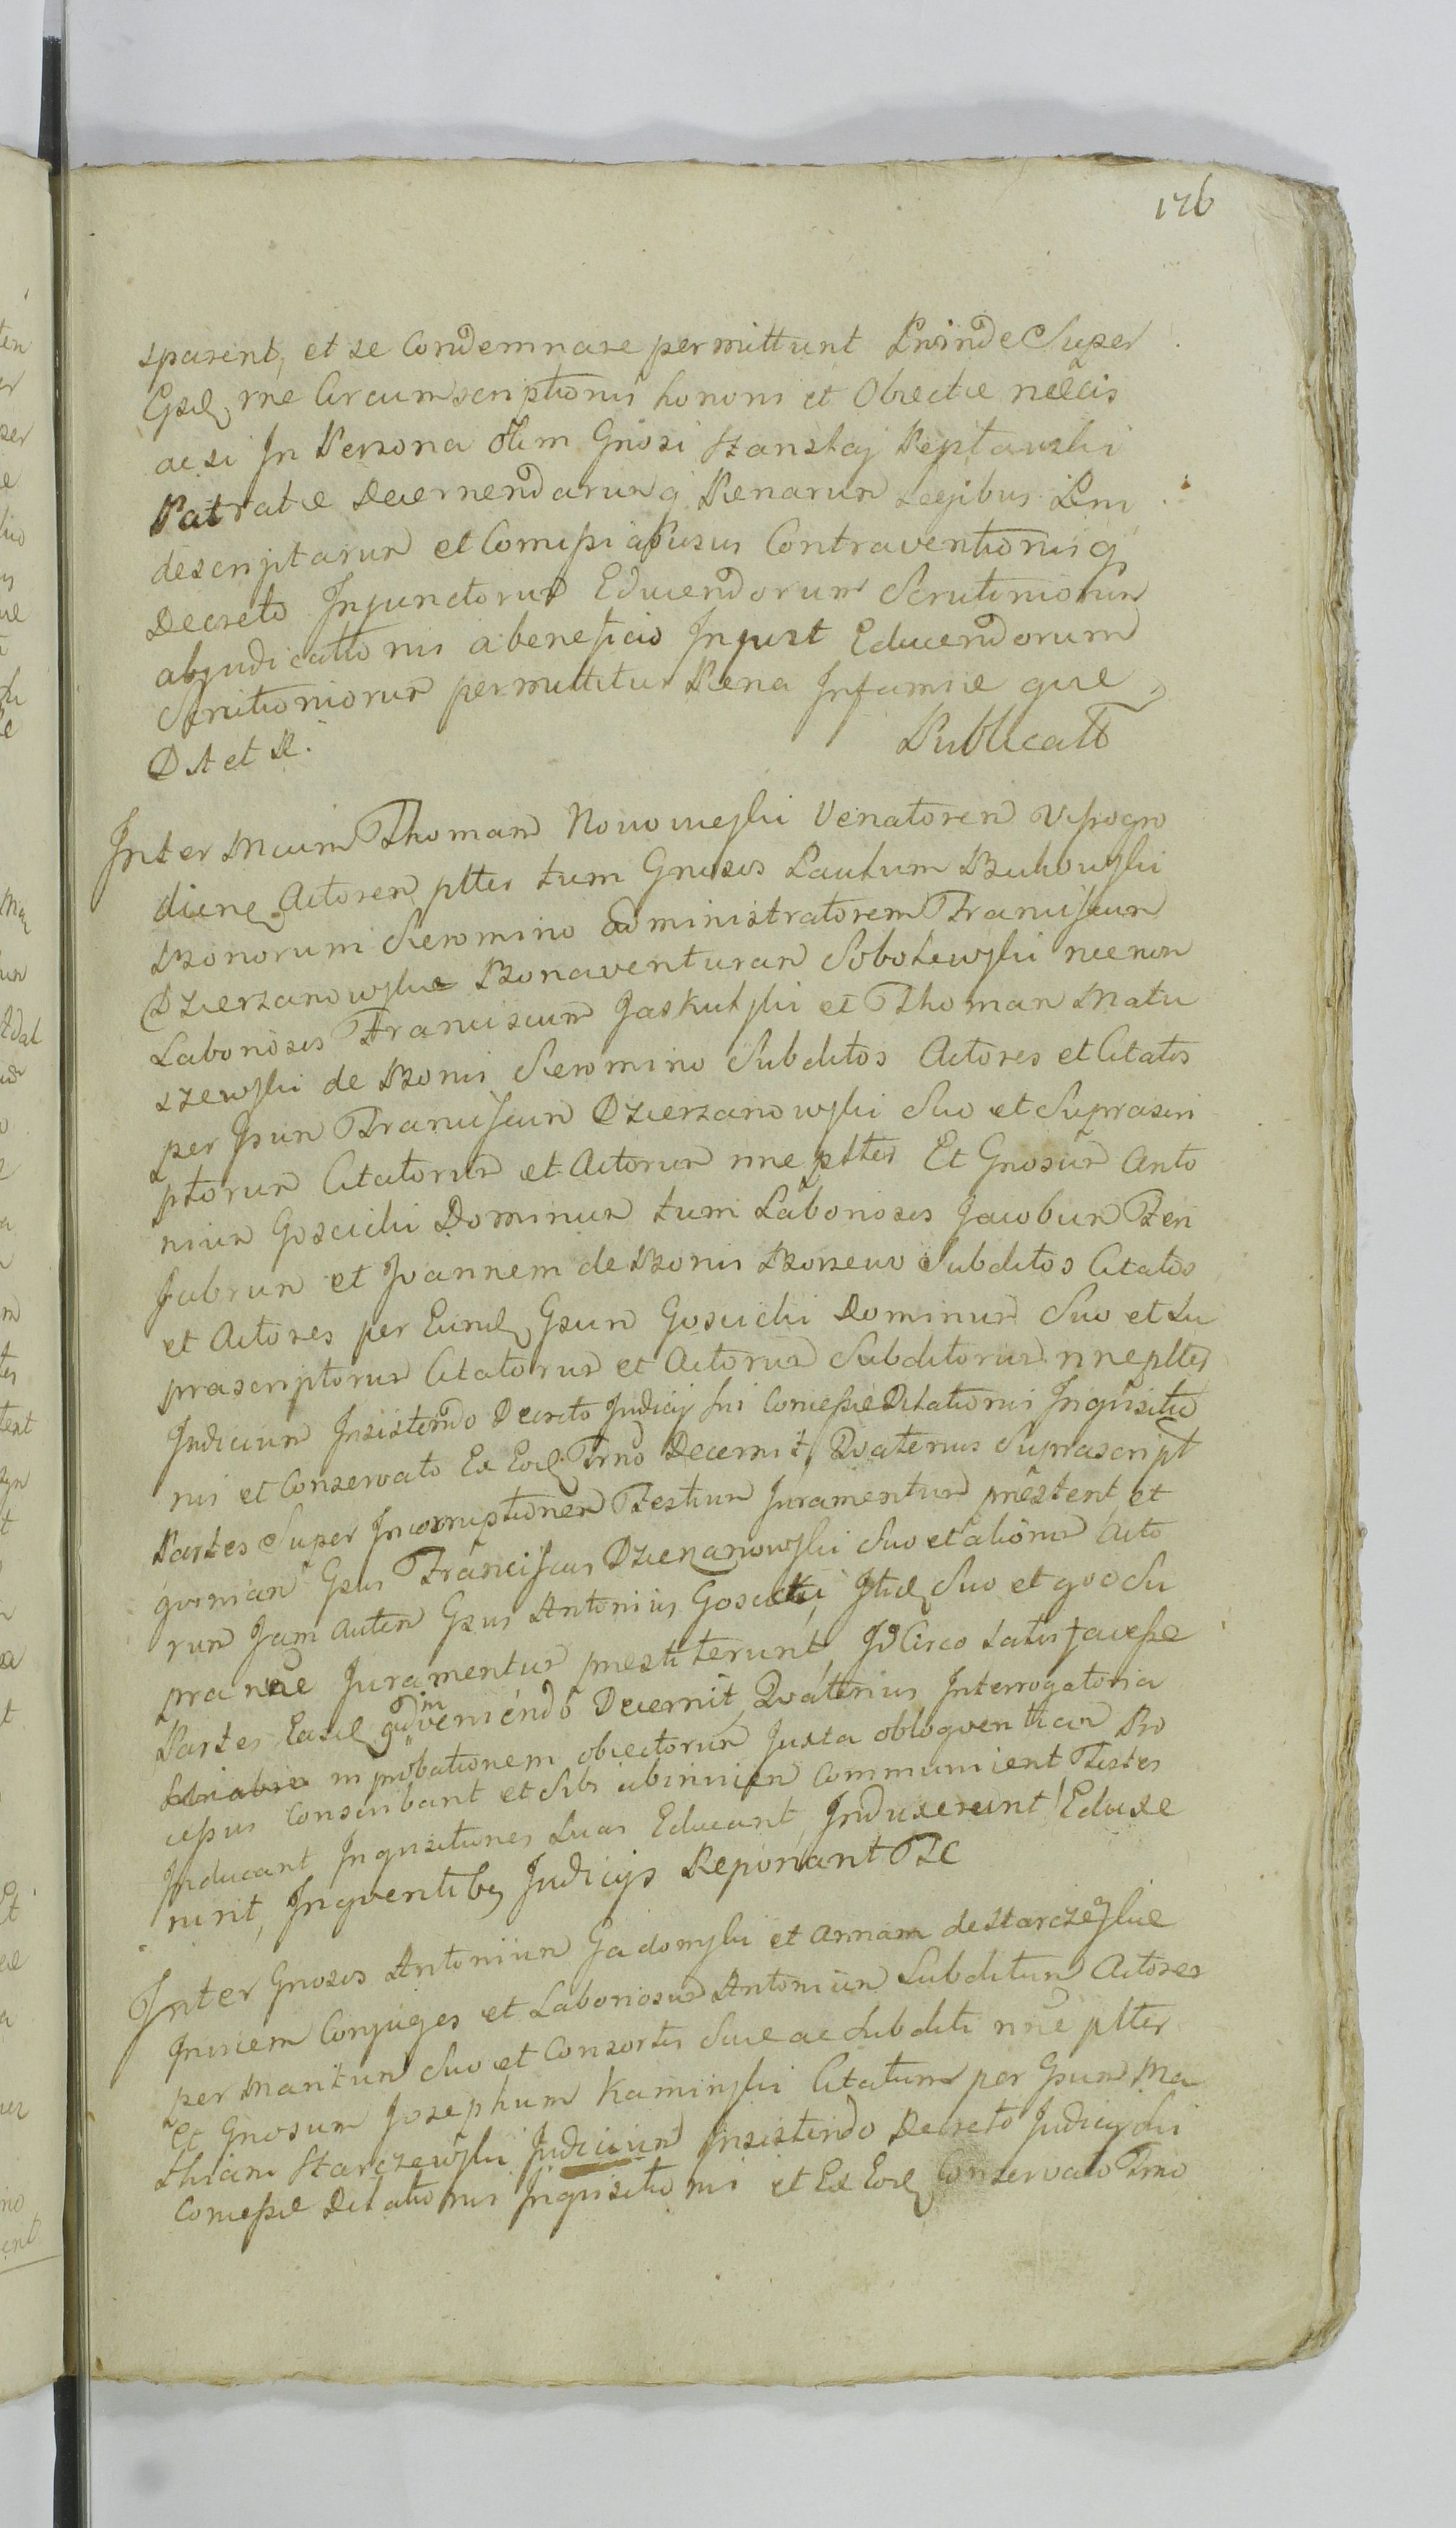 176
sparent, et se Condemnare permittunt Proinde Super
Eisd. rne Circumscriptionis honoris et Obiectae necis
ac si In Persona olim Gnosi Stanslaj Reptawski
Patratae decernendarumq Penarum Legibus Pni
descriptarum et Comissi abusus Contraventionisq
Decreto Injunctorum Educendorum Scrutiniorum
abjudicationis a beneficio Injunct Educendorum
Scrutiniorum permittitur Pena Infamiae quae
D A et R. Publicatt
Inter Mcum Thomam Nowowieyski Venatorem Vyssogro
diens Actorem pltter tum Gnosos Paulum Bukowski
Bonorum Seromino administratorem Franciscum
Dzierzanowski Bonaventuram Sobolewski necnon
Laboriosos Franciscum Jaskulski et Thomam Matu
szewski de Bonis Seromino Subditos Actores et Citatos
per Gsum Franciscum Dzierzanowski Suo et Suprascri
ptorum Citatorum et Actorum nne pltter Et Gnosum Anto
nium Goscicki Dominum tum Laboriosos Jacobum
fabrum et Joannem de Bonis Subditos Citatos
et Actores per Eund Gsum Goscicki Dominum Suo et Su
prascriptorum Citatorum et Actorum Subditorum nne pltter
Judicium Insistendo Decreto Judicij sui Concessae Dilationis Inquisitio
nis et Conservato Ex Eod Trno Decernit, Quatenus Suprascript
Partes Super Incorruptionem Testium Juramentum praestent et
quoniam Gsus Franciscus Dzierzanowski Suo et aliorum Acto
rum Jam autem Gsus Antonius Goscicki Itid Suo et quo Su
pra nne Juramentum praestiterunt, Id Circo Satisfacesse
Partes Easd inveniendo Decernit, Quatenus Interrogatoria
in probationem obiectorum Juxta obloquentiam Pro
cessus Conscribant et Sibi abinvicem Communicent Testes
Inducant Inquisitiones Suas Educant, Induxerint Eduxe
rint, Inquentibq Judicijs Reponant
Inter Gnosos Antonium Gadomski et Annam de Starczewskie
Invicem Conjuges et Laboriosum Antonium Subditum Actores
per Maritum Suo et Consortis Suae ac Subditi nne pltter
Et Gnosum Josephum Kaminski Citatum per Gsum Ma
thiam Starczewski Judicium Insistendo Decreto Judicij Sui
Concessae Dilationis Inquisitionis et Ex Eod Conservato Trno